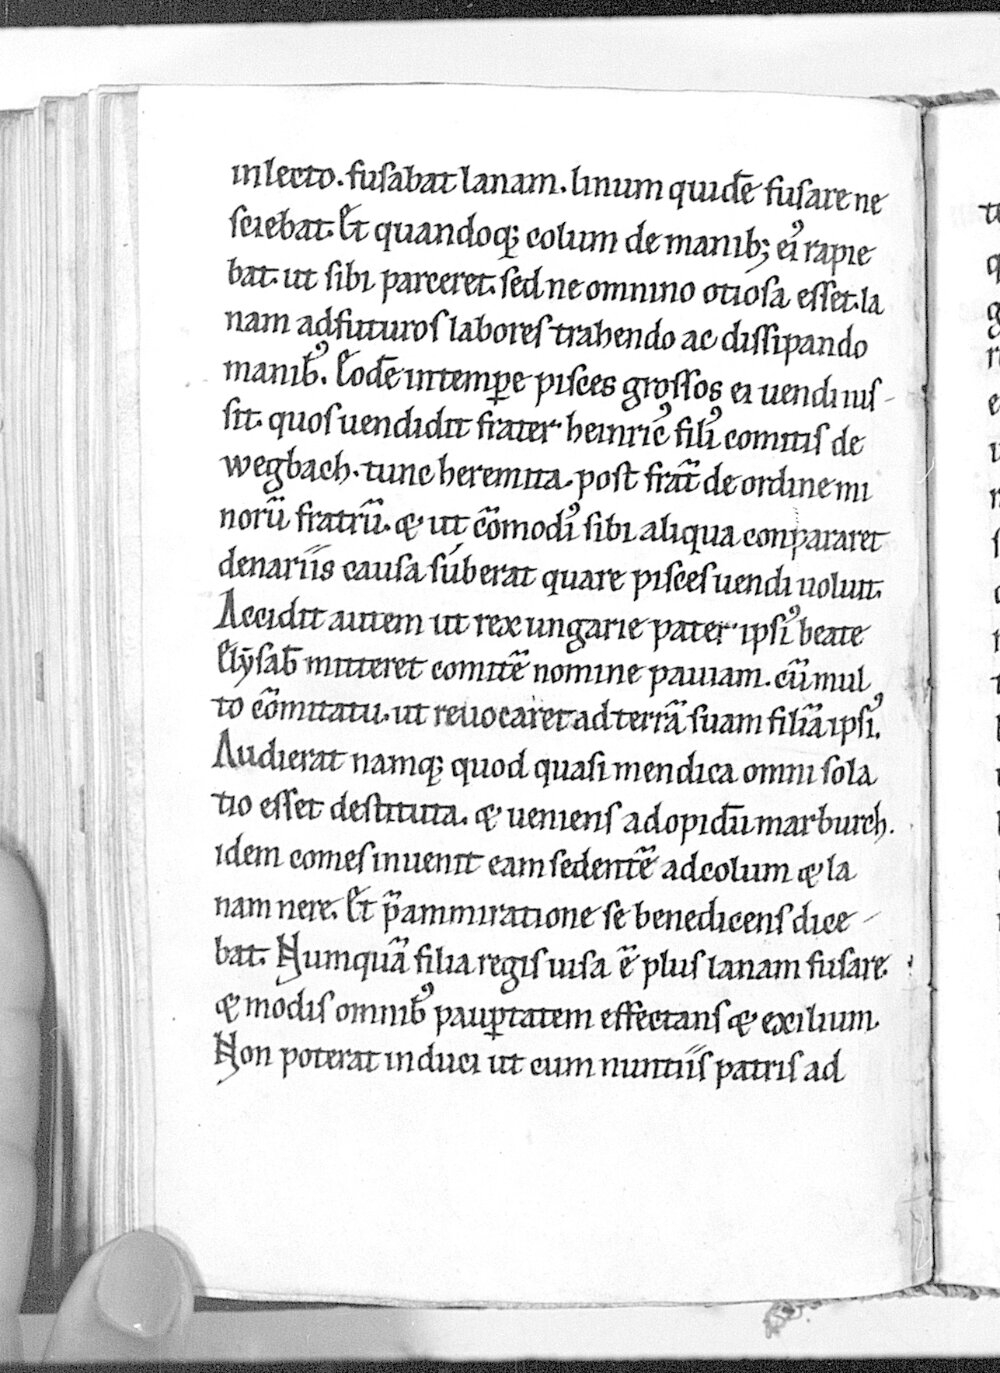 in lecto. fusabat lanam. linum quidē fusare ne
sciebat. Et quandoq; colum de manib; ei᷒ rapie
bat. ut sibi parceret. sed ne omnino otiosa esset. la
nam ad futuros labores trahendo ac dissipando
manib᷒. Eodē intemꝑe pisces grossos ei uendi ius-
sit. quos uendidit frater heinric᷒ fili᷒ comitis de
wegbach. tunc heremita. post frat̄ de ordine mi
norū fratrū. ⁊ ut cōmodi᷒ sibi aliqua conpararet
denariis causa súberat quare pisces uendi uoluit.
Accidit autem ut rex ungarie pater ipsi᷒ beate
Elẏsab̄ mitteret comitē nomine pauiam. cū mul
to cōmitatu. ut reuocaret ad terrā suam filiā ipsi᷒.
Audierat namq; quod quasi mendica omni sola
tio esset destituta. ⁊ ueniens ad opidū marburch.
idem comes inuenit eam sedentē ad colum ⁊ la
nam nere. Et p̄ ammiratione se benedicens dice-
bat. Numquā filia regis uisa ē plus lanam fusare.
⁊ modis omnib᷒ pauꝑtatem effectans ⁊ exilium.
Non poterat induci ut cum nuntiis patris ad